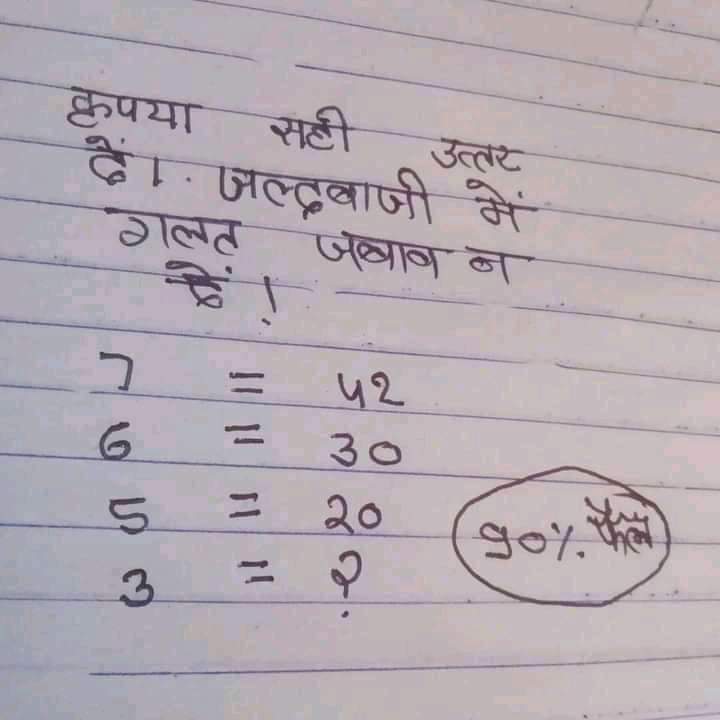 कृपया सही उत्तर
दें। जल्दबाजी में
गलत जबाब न
दें!
7 = 42
6 = 30
5 = 20
3 = ?
90% फेल